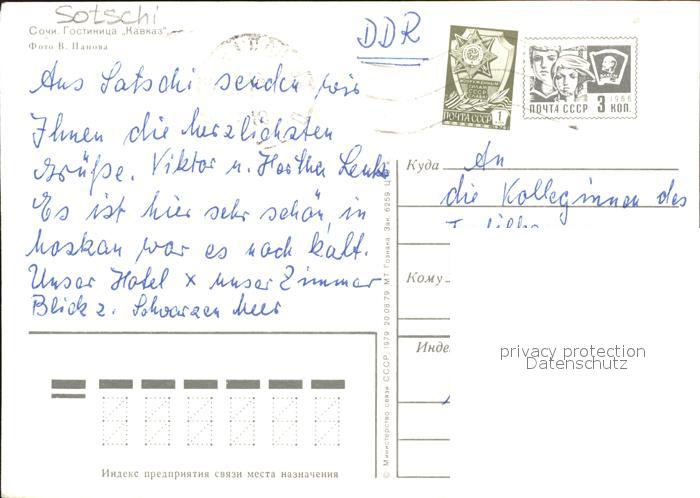 Sotschi
Сочи. Гостиница „Кавказ".
Фото В. Панова
DDR
Aus Sotschi senden wir
Ihnen die herzlichsten
Grüße. Viktor u. Hertha
Es ist hier sehr schön, in
Moskau war es noch kalt.
Unser Hotel x unser Zimmer
Blick z. Schwarzen Meer
ПОЧТА СССР 1
1966
ПОЧТА СССР 3 КОП.
Куда
An
die Kolleginnen des
Кому
Инде
privacy protection
Datenschutz
© Министерство связи СССР, 1979 20.08.79. МТ Гознака. Зак. 6259. Ц
Индекс предприятия связи места назначения